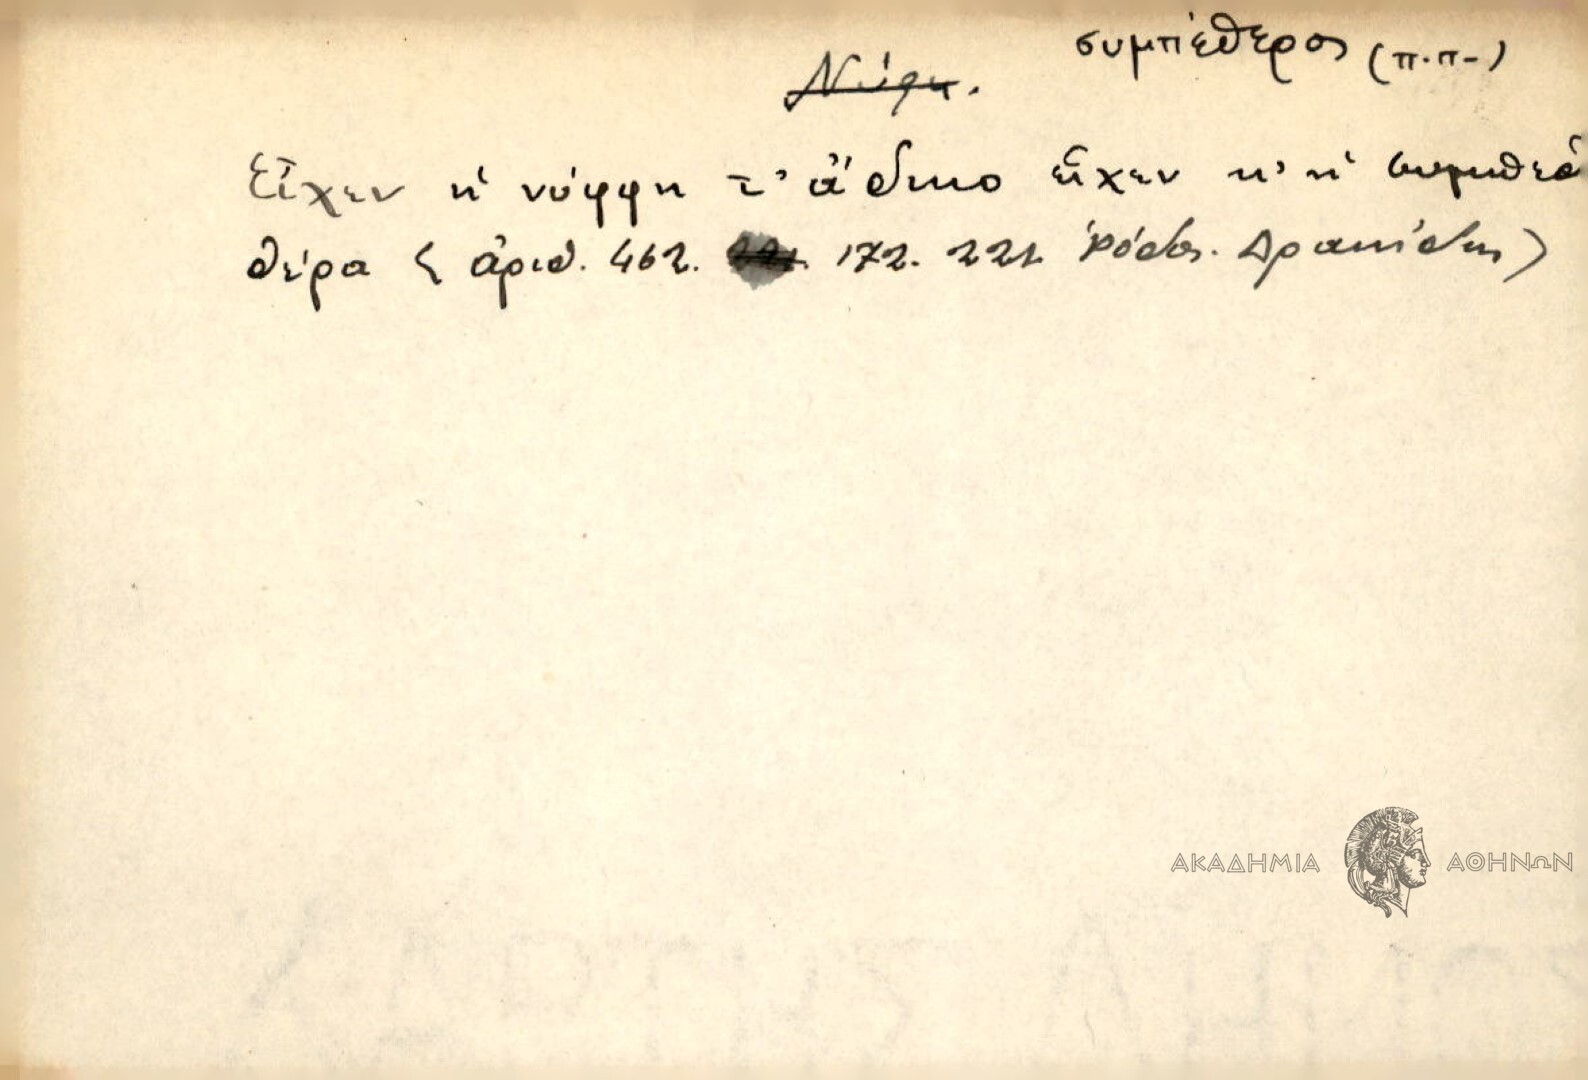 συμπέθερος (π.π-)
Νύφη.
Εἶχεν ἡ νύφφη τ' ἄδικο εἶχεν κ' ἡ
θέρα (ἀριθ. 462. 172. 221 Ρόδος. Δρακίδης)
ΑΚΑΔΗΜΙΑ ΑΘΗΝΩΝ